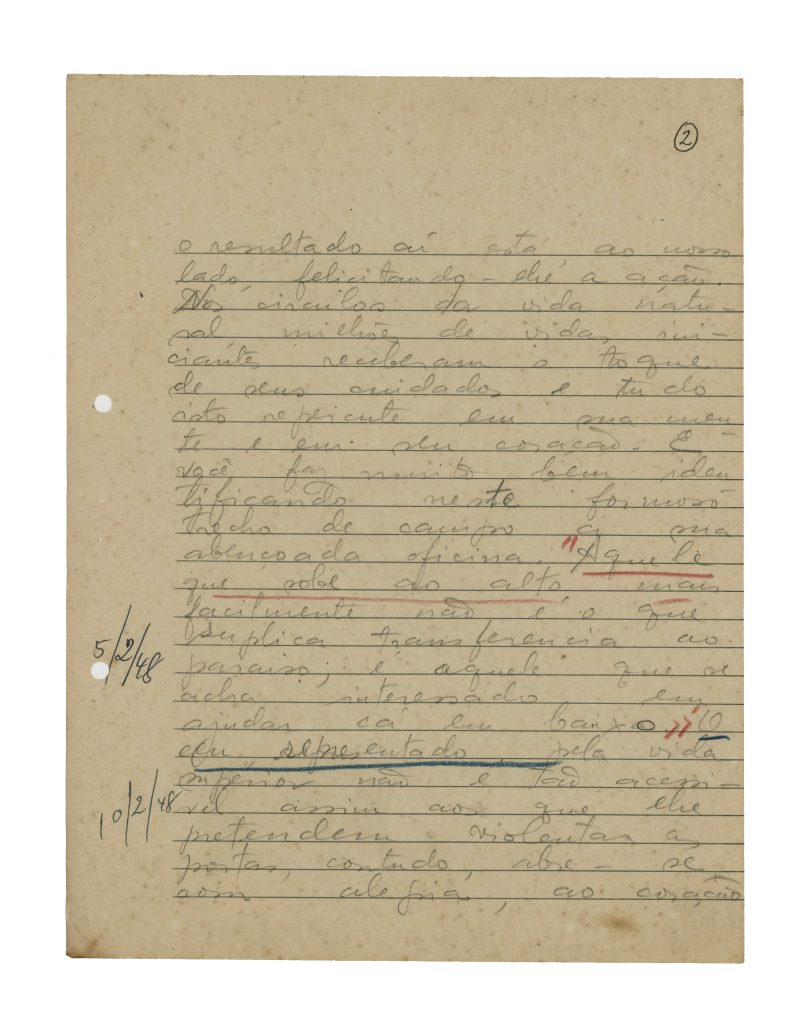 2
o resultado aí está, ao nosso
lado, felicitando-lhe a ação.
Nos circulos da vida natu-
ral milhões de vidas ini-
ciantes receberam o toque
de seus cuidados e tudo
isto repercute em sua men
te e em seu coração. E
você faz muito bem iden
tificando neste formoso
trecho de campo a sua
abençoada oficina. "Aquele
que sobe ao alto, mais
facilmente não é o que
suplica transferencia ao
paraiso; é aquele que se
acha interessado em
ajudar cá em baixo" O
Ceu, representado pela vida
superior não é tão acessi-
vel assim aos que lhe
pretendem violentar as
portas, contudo, abre-se
com alegria, ao coração
5/2/48
10/2/48